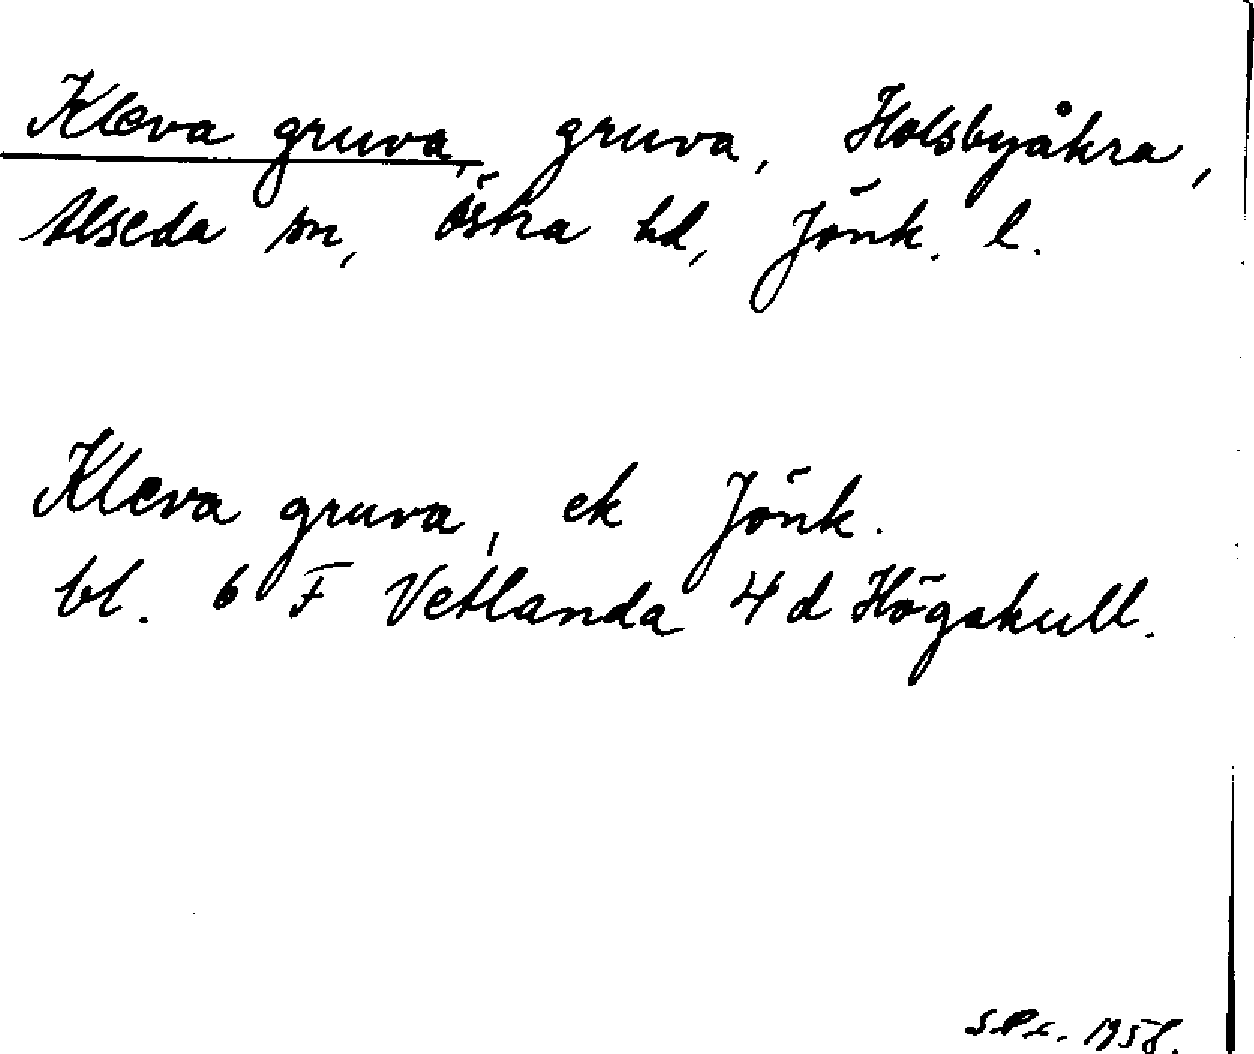 Kleva gruva, gruva, Holsbyåkra,
Alseda sn, Östra hd, Jönk. l.
Kleva gruva, ek Jönk.
bl. 6 F Vetlanda 4 d Högakull.
1958.